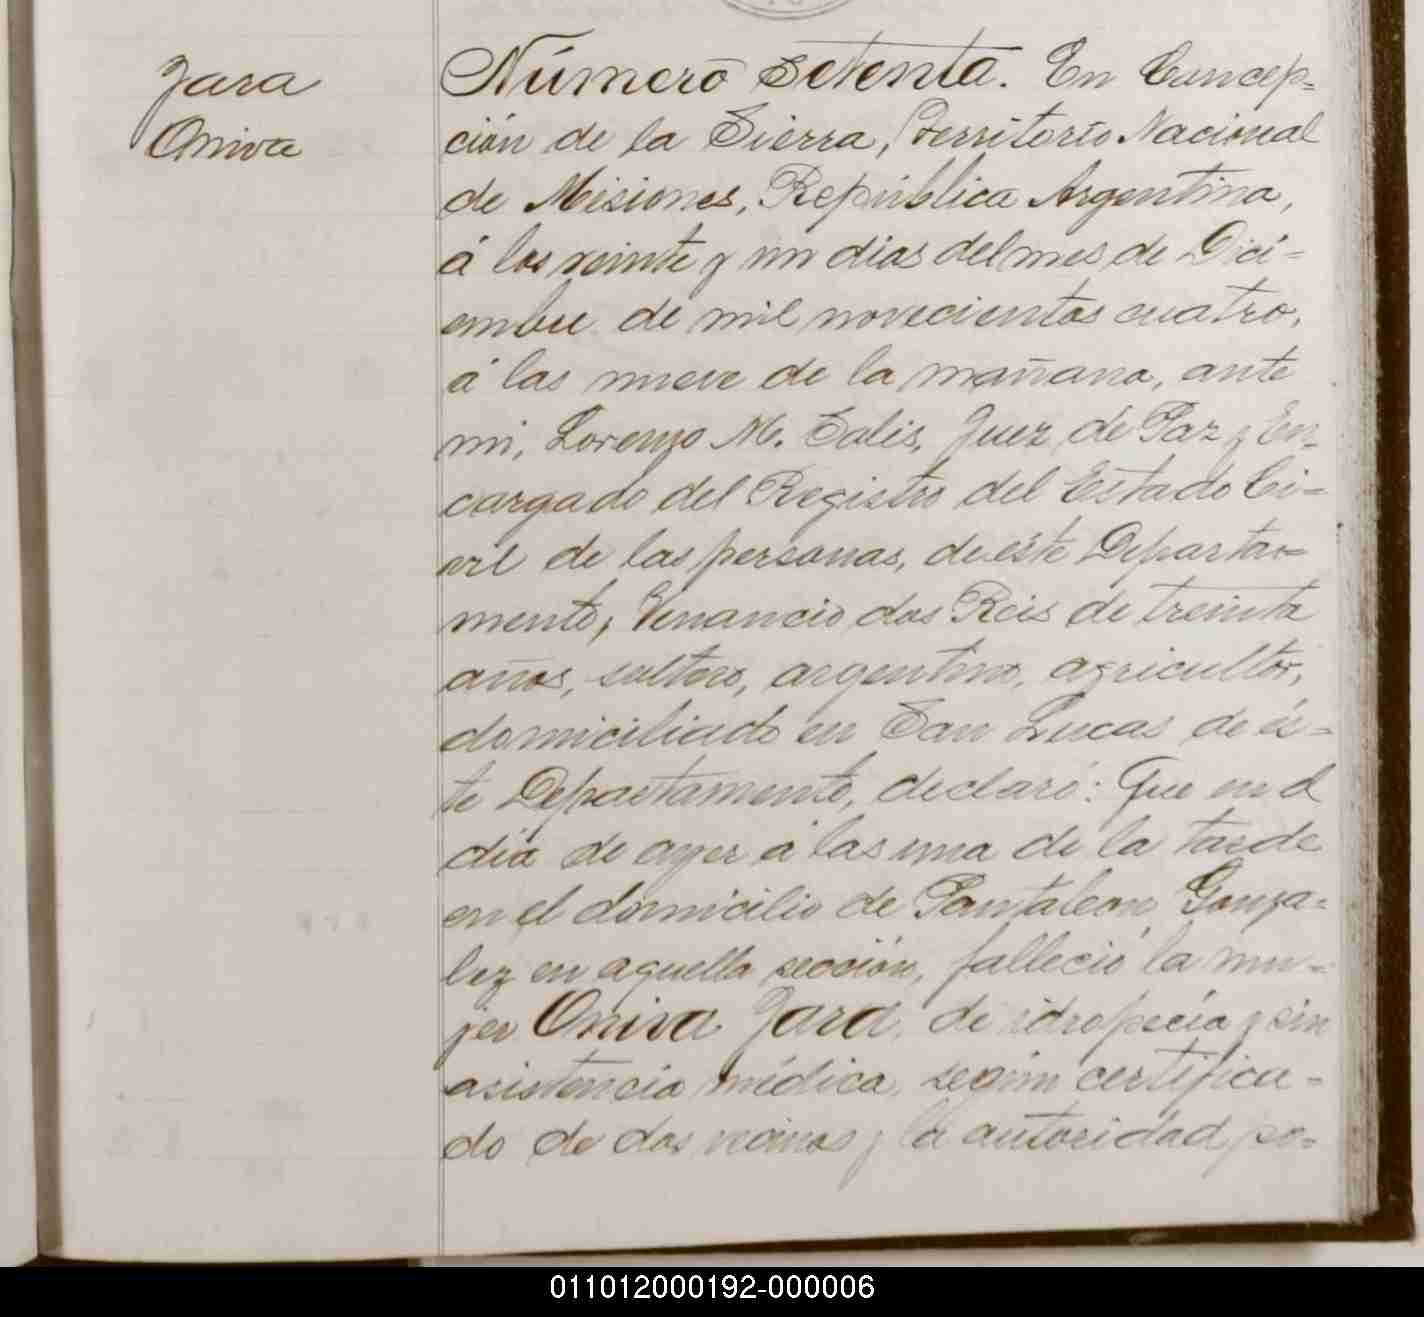 Jara
Oniva
Número setenta. En Concep=
ción de la Sierra, Territorio Nacional
de Misiones, República Argentina,
á los veinte y un dias del mes de Dici=
embre de mil novecientos cuatro,
á las nueve de la mañana, ante
mi, Lorenzo M. Salis, Juez de Paz y En=
cargado del Registro del Estado Ci=
vil de las personas, de este Departa=
mento, Venancio dos Reis de treinta
años, soltero, argentino, agricultor,
domiciliado en San Lucas de és=
te Departamento, declaró: Que en el
dia de ayer á las una de la tarde
en el domicilio de Pantaleon Gonza=
lez en aquella sección, falleció la mu=
jer Oniva Jara, de idropecía y sin
asistencia médica, según certifica=
do de dos vecinos y la autoridad po=
011012000192-000006